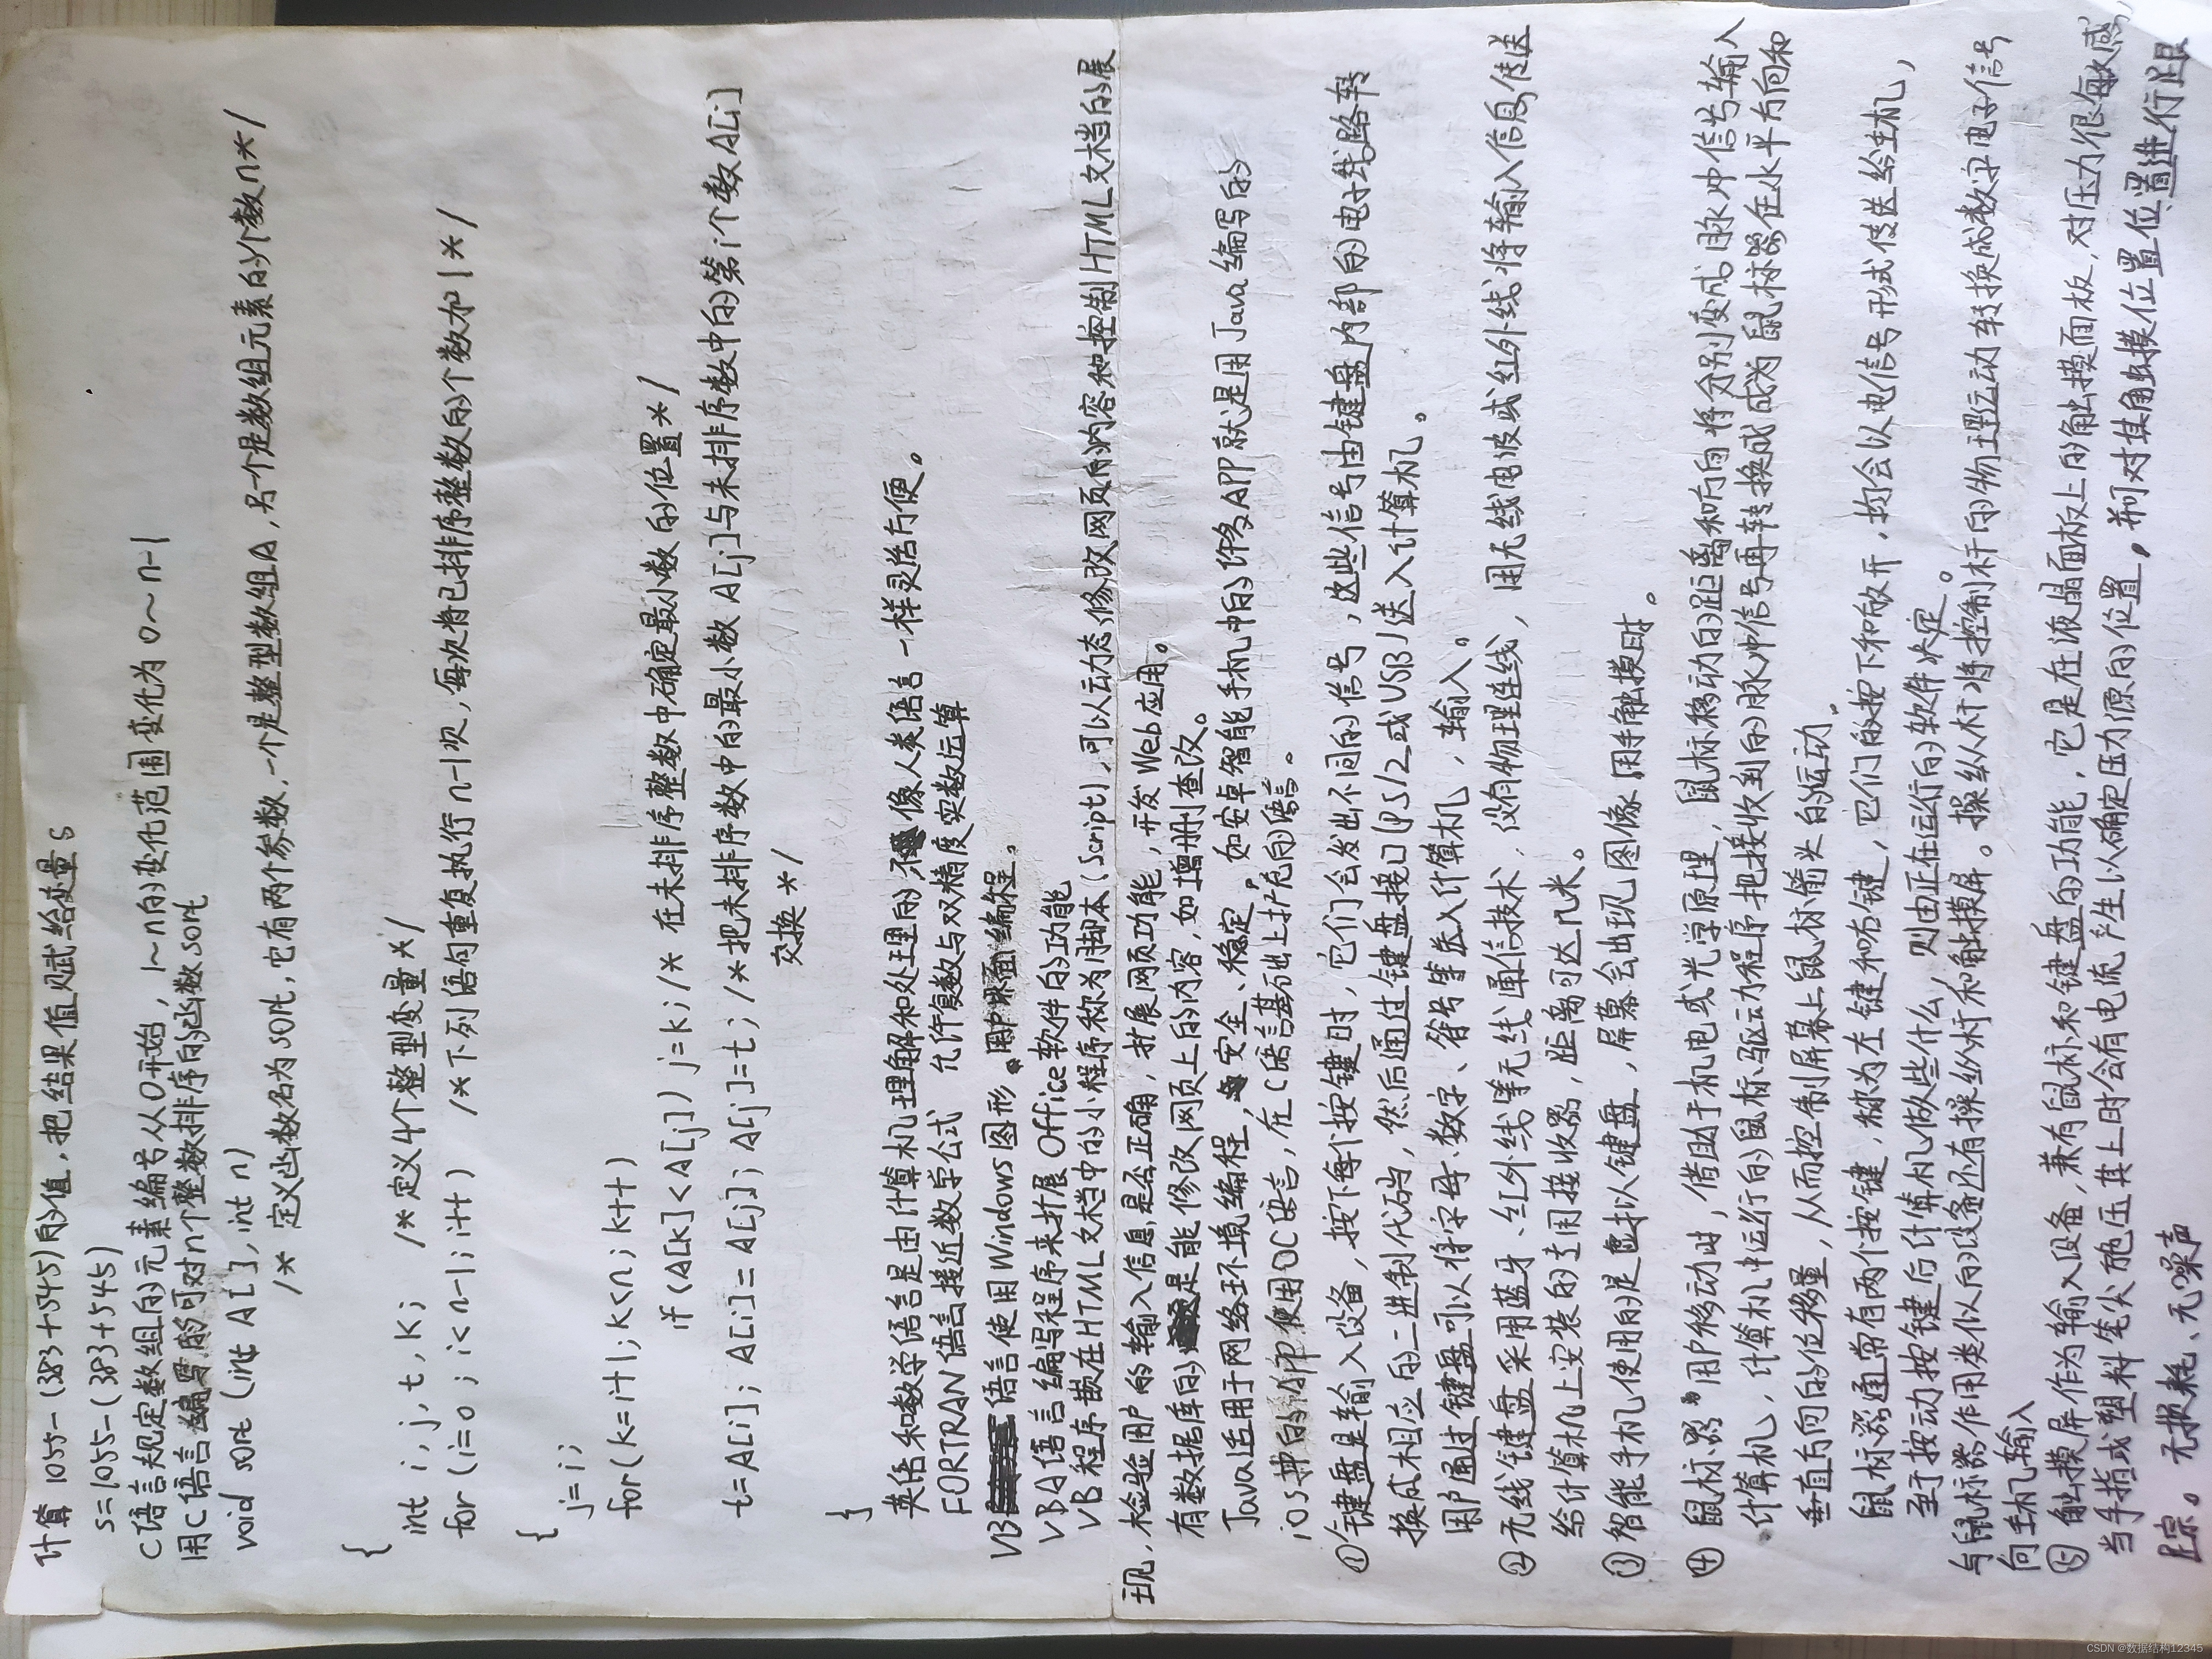 计算 1055-(383+545)的值,把结果值赋给变量s
s=1055-(383+545)
C语言规定数组的元素编号从0开始,1~n的变化范围变化为0~n-1
用C语言编写的可对n个整数排序的函数sort
void sort (int A[],int n)
/* 定义函数名为sort,它有两个参数,一个是整型数组A,另一个是数组元素的个数n*/
{
int i,j,t,k; /*定义4个整型变量*/
for(i=0;i<n-1;i++) /*下列语句重复执行n-1次,每次将已排序整数的个数加1*/
{
j=i;
for(k=i+1;k<n;k++)
if(A[k]<A[j]) j=k;/* 在未排序整数中确定最小数的位置*/
t=A[i]; A[i]=A[j]; A[j]=t; /*把未排序数中的最小数A[j]与未排序数中的第i个数A[i]
交换*/
}
英语和数学语言是由计算机理解和处理的,不像人类语言一样灵活方便。
FORTRAN语言接近数学公式 允许复数与双精度实数运算
VB语言使用Windows图形。用户界面编程。
VBA语言编写程序来扩展Office软件的功能
VB程序嵌在HTML文档中的小程序称为脚本(Script),可以动态修改网页的内容和控制HTML文档的展
现,检验用户的输入信息是否正确,扩展网页功能,开发Web应用。
有数据库的是能修改网页上的内容,如增删查改。
Java适用于网络环境编程,安全、稳定。如安卓智能手机中的许多APP就是用Java编写的
iOS 使用OC语言,在C语言基础上扩充的语言。
①键盘是输入设备,按下每个按键时,它们会发出不同的信号,这些信号由键盘内部的电子线路转
换成相应的二进制代码,然后通过键盘接口(PS/2或USB)送入计算机。
用户通过键盘可以将字母、数字、符号等送入计算机,输入。
②无线键盘采用蓝牙、红外线等无线通信技术,没有物理连线,用无线电波或红外线将输入信息传送
给计算机上安装的专用接收器,距离可达几米。
③智能手机使用的是虚拟键盘,屏幕会出现图像,用手触摸时。
④ 鼠标器用户移动时,借助于机电或光学原理,鼠标移动的距离和方向将分别变成脉冲信号输入
计算机,计算机中运行的鼠标驱动程序把接收到的脉冲信号再转换成为鼠标器在水平方向和
垂直方向的位移量,从而控制屏幕上鼠标箭头的运动。
鼠标器通常有两个按键,称为左键和右键,它们的按下和放开,均会以电信号形式传送给主机,
至于按动按键后计算机做些什么,则由正在运行的软件决定。
与鼠标器作用类似的设备还有操纵杆和触摸屏。操纵杆将控制杆的物理运动转换成数字电子信号
向主机输入
⑤ 触摸屏作为输入设备,兼有鼠标和键盘的功能,它是在液晶面板上的触摸面板,对压力很敏感,
当手指或塑料笔尖施压其上时会有电流产生以确定压力源的位置,并可对其触摸位置进行跟
踪。无损耗、无噪声
CSDN @数据结构12345